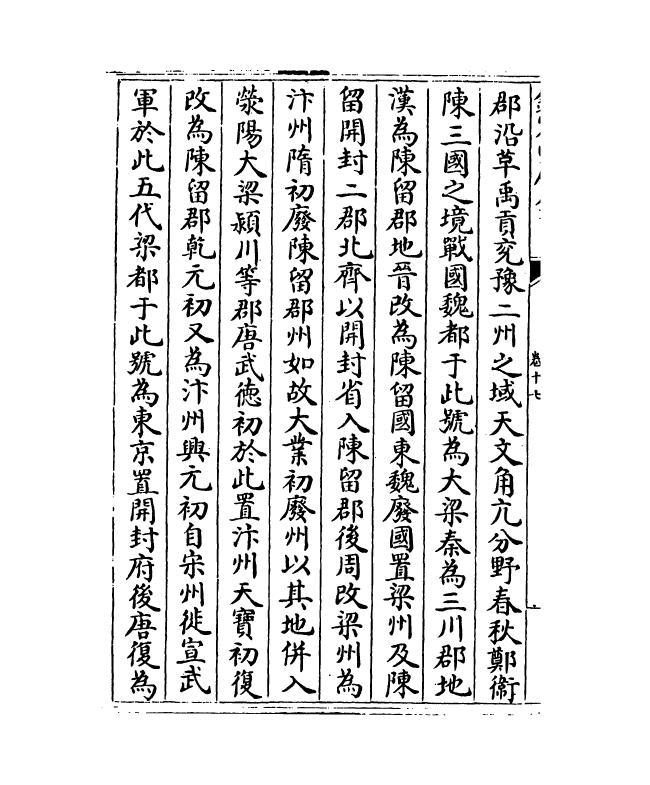 卷十七
郡沿革禹貢兖豫二州之域天文角亢分野春秋鄭衛
陳三國之境戰國魏都于此號為大梁秦為三川郡地
漢為陳留郡地晉改為陳留國東魏廢國置梁州及陳
留開封二郡北齊以開封省入陳留郡後周改梁州為
汴州隋初廢陳留郡州如故大業初廢州以其地併入
滎陽大梁潁川等郡唐武德初於此置汴州天寶初復
改為陳留郡乾元初又為汴州興元初自宋州徙宣武
軍於此五代梁都于此號為東京置開封府後唐復為